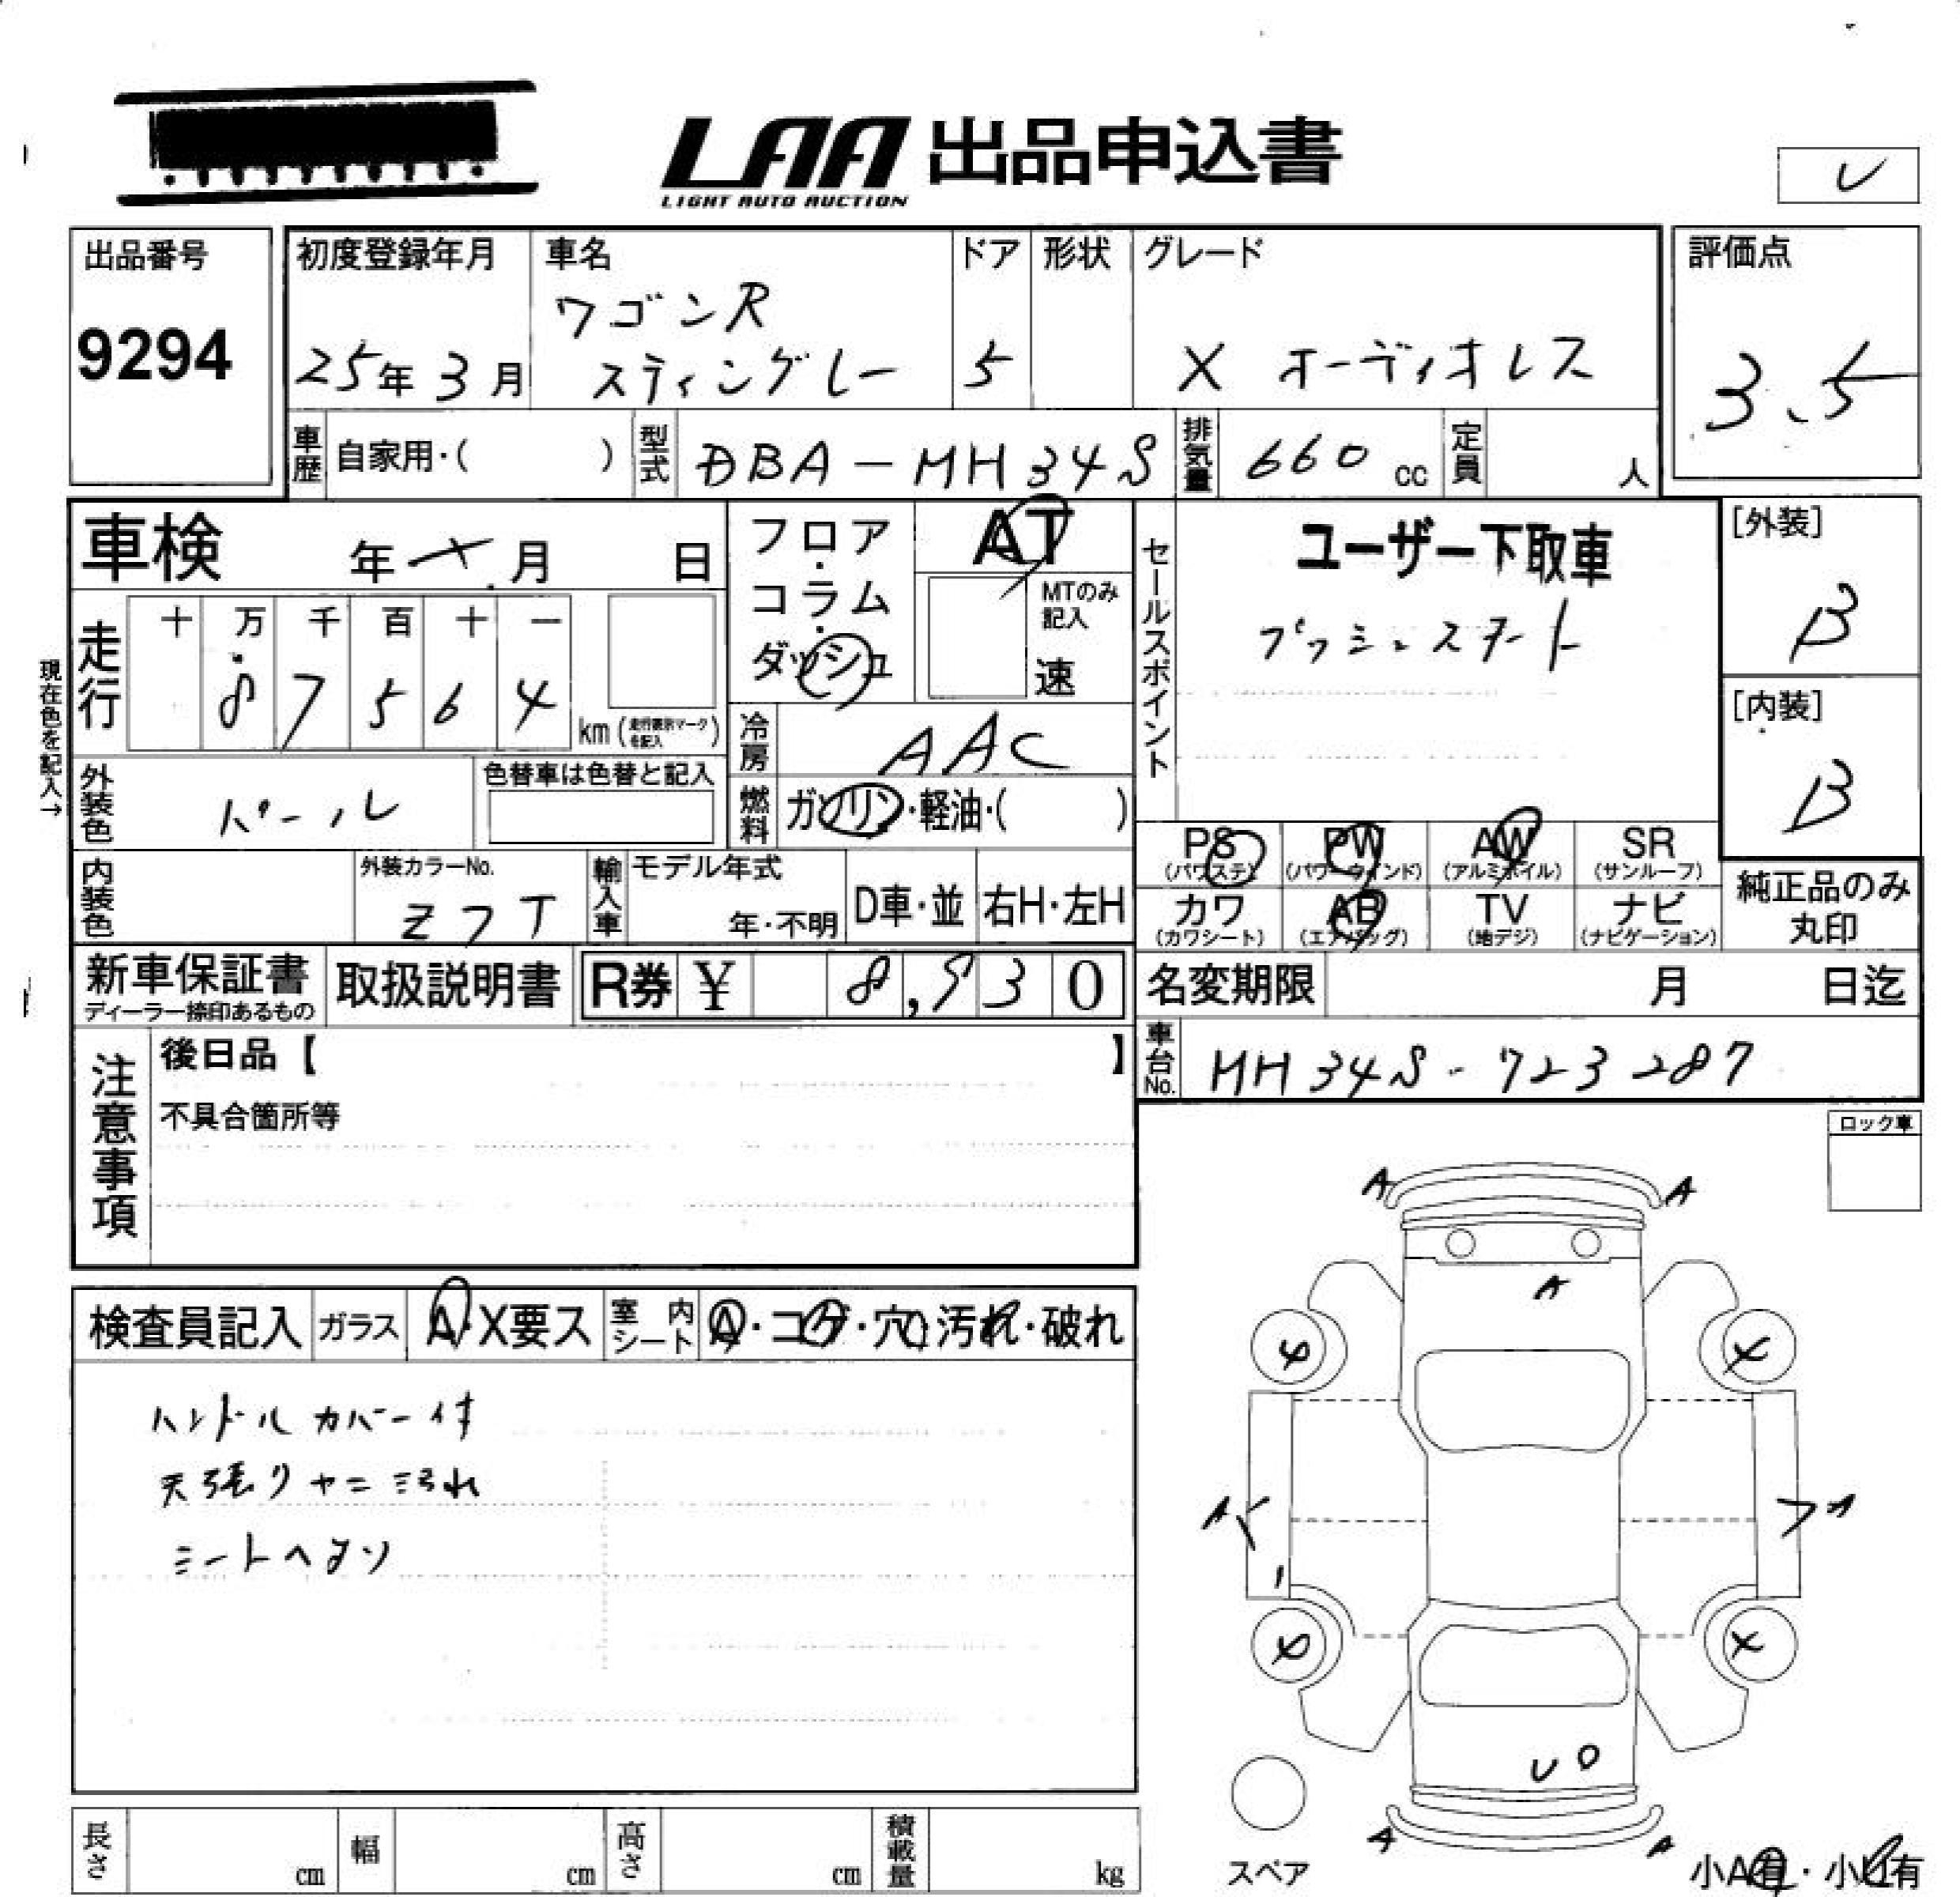 LAA 出品申込書
LIGHT AUTO AUCTION
レ
出品番号
9294
初度登録年月
25年3月
車名
ワゴンR
スティングレー
ドア
5
形状
グレード
X オーディオレス
評価点
3.5
車歴 自家用・( )
型式 DBA-MH34S
排気量 660 cc
定員 人
車検 年 月 日
フロア・コラム・ダッシュ
AT
MTのみ記入
速
セールスポイント
ユーザー下取車
プッシュスタート
[外装]
B
[内装]
B
現在色を記入→
走行
十 万 千 百 十 一
8 7 5 6 4
km (走行表示マークを記入)
冷房 AAC
燃料 ガソリン・軽油・( )
外装色 パール
色替車は色替と記入
内装色
外装カラーNo.
Z7T
輸入車
モデル年式
年・不明
D車・並
右H・左H
PS
(パワステ)
PW
(パワーウインド)
AW
(アルミホイル)
SR
(サンルーフ)
カワ
(カワシート)
AB
(エアバッグ)
TV
(地デジ)
ナビ
(ナビゲーション)
純正品のみ
丸印
新車保証書
ディーラー捺印あるもの
取扱説明書
R券 ¥ 8,930
名変期限 月 日迄
車台No. MH34S-723287
注意事項
後日品【 】
不具合箇所等
ロック車
検査員記入
ガラス A・X要ス
室内シート A・コゲ・穴・汚れ・破れ
ハンドルカバー付
天張りヤニ汚れ
シートヘタリ
A A
A
A A
U
A A
スペア
小A有・小U有
長さ cm
幅 cm
高さ cm
積載量 kg